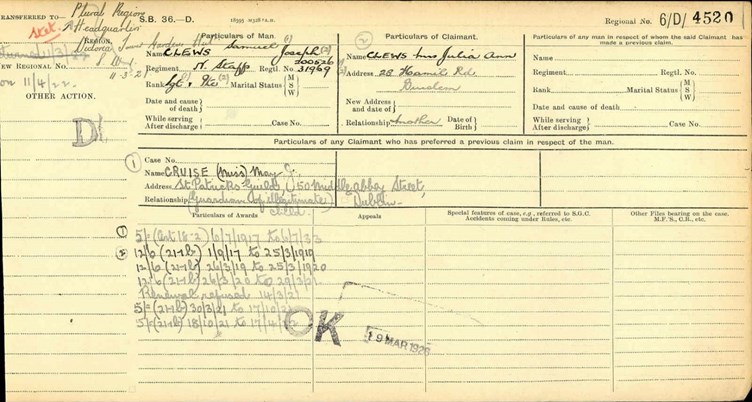 TRANSFERRED TO Plural Regions
Headquarters
REGION.
NEW REGIONAL No.
on 11/4/22.
OTHER ACTION.
D
S.B. 36.—D.
Regional No. 6/D/ 4520
Particulars of Man.
Samuel (1)
Name CLEWS Joseph (2)
200526
Regiment N. Staff Regtl. No. 31969
Rank Sgt. Pte (2) Marital Status { M S W
Date and cause of death }
While serving
After discharge } Case No.
(2)
Particulars of Claimant.
Name CLEWS Mrs Julia Ann
Address 28 Hamil Rd.
Burslem
New Address and date of }
Relationship Mother Date of Birth }
Particulars of any man in respect of whom the said Claimant has made a previous claim.
Name
Regiment Regtl. No.
Rank Marital Status { M S W
Date and cause of death }
While serving
After discharge } Case No.
Particulars of any Claimant who has preferred a previous claim in respect of the man.
(1)
Case No.
Name CRUISE (Miss) May J.
Address St Patricks Guild, 50 Middle Abbey Street,
Relationship (Guardian of illegitimate Dublin
child.
Particulars of Awards
Appeals
Special features of case, e.g., referred to S.G.C. Accidents coming under Rules, etc.
Other Files bearing on the case. M.F.S., C.R., etc.
(1) 5/= (Art 18-2) 6/7/1917 to 6/7/33
(2) 12/6 (21-1b) 1/9/17 to 25/3/1919
12/6 (21-1b) 26/3/19 to 25/3/1920
12/6 (21-1b) 26/3/20 to 29/3/21
Renewal refused 14/3/21
5/= (21-1b) 30/3/21 to 17/10/21
5/= (21-1b) 18/10/21 to 17/4/22
OK
19 MAR 1926